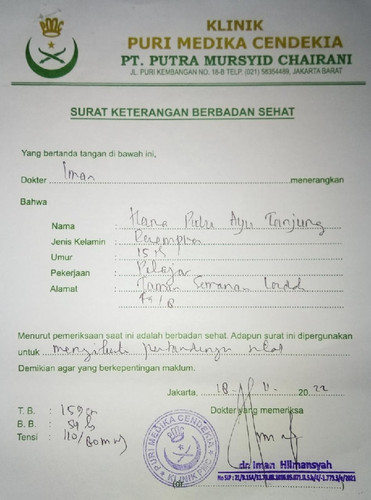 KLINIK
PURI MEDIKA CENDEKIA
PT. PUTRA MURSYID CHAIRANI
JL. PURI KEMBANGAN NO. 18-B TELP. (021) 58354489, JAKARTA BARAT
SURAT KETERANGAN BERBADAN SEHAT
Yang bertanda tangan di bawah ini,
Dokter Iman menerangkan
Bahwa
Nama : Hana Putri Ayu Tanjung
Jenis Kelamin : Perempuan
Umur : 15 th
Pekerjaan : Pelajar
Alamat : Taman Semanan Indah
Menurut pemeriksaan saat ini adalah berbadan sehat. Adapun surat ini dipergunakan
untuk mengikuti pertandingan
Demikian agar yang berkepentingan maklum.
Jakarta, 18 - 11 - 2022
T. B. : 159 cm
Dokter yang memeriksa
B. B. :
Tensi : 110/80 mmHg
PURI MEDIKA CENDEKIA
KLINIK
dr. Iman Hilmansyah